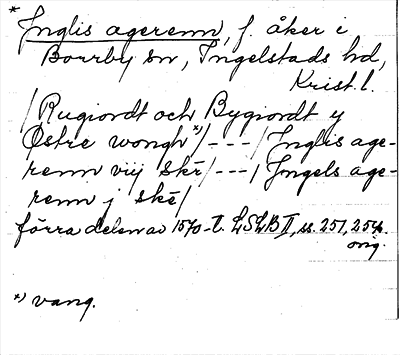 * Jnglis agerenn, f. åker i
Borrby sn, Ingelstads hd,
Krist. l.
/Rugiordt och Bygiordt y
Østre wongh *)/---/Jnglis age-
renn viij skr/---/Jngels age-
renn j skē/
förra delen av 1570-t. LSLB II, ss. 251, 254.
orig.
*) vang.